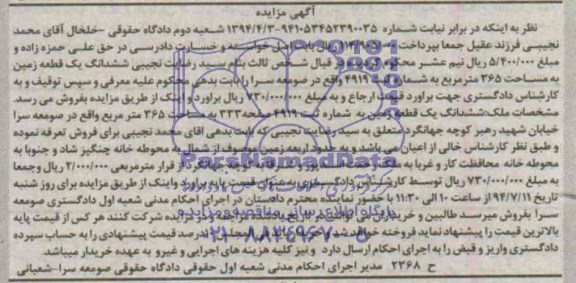 آگهی مزایده
نظر به اینکه در برابر نیابت شماره ۹۴۱۰۵۳۴۵۲۳۹۰۰۳۵-۱۳۹۴/۴/۳ شعبه دوم دادگاه حقوقی -خلخال آقای محمد
نجیبی فرزند عقیل جمعا بپرداخت ریال بابت اصل خواسته و خسارت دادرسی در حق علی حمزه زاده و
۵/۴۰۰/۰۰۰ ریال نیم عشر محکوم گردیده در قبال شخص ثالث بنام سید رضایت نجیبی ششدانگ یک قطعه زمین
به مساحت ۳۶۵ مترمربع به شماره ثبت ۴۹۱۹ واقع در صومعه سرا را بابت بدهی محکوم علیه معرفی و سپس توقیف و به
کارشناس دادگستری جهت براورد قیمت ارجاع و به مبلغ ۷۳۰/۰۰۰/۰۰۰ ریال براورد و اینک از طریق مزایده بفروش می رسد.
مشخصات ملک:ششدانگ یک قطعه زمین به شماره ثبت ۴۹۱۹ صفحه ۳۳۳ به مساحت ۳۶۵ متر مربع واقع در صومعه سرا
خیابان شهید رهبر کوچه جهانگرد متعلق به سید رضایت نجیبی که بابت بدهی اقای محمد نجیبی برای فروش تعرفه نموده
و طبق نظر کارشناس خالی از اعیان می باشد و به حدود اربعه زمین موصوف از شمال به محوطه خانه چنگیز شاد و جنوبا به
محوطه خانه محافظت کار و غربا به کوچه جهانگرد از قرار مترمربعی ۲/۰۰۰/۰۰۰ ریال و جمعا
به مبلغ ۷۳۰/۰۰۰/۰۰۰ ریال توسط کارشناس دادگستری به عنوان قیمت پایه براورد واینک از طریق مزایده برای روز شنبه
تاریخ ۹۴/۷/۱۱ از ساعت ۱۰ الی ۱۱:۳۰ با حضور نماینده محترم دادستان در اجرای احکام مدنی شعبه اول دادگستری صومعه
سرا بفروش میرسد طالبین و خریداران شرکت کنند هر کس از قیمت پایه
بالاترین قیمت را پیشنهاد نماید فروخته خواهد شد درصد قیمت پیشنهادی را به حساب سپرده
دادگستری واریز و قبض را به اجرای احکام ارسال دارد و نیز کلیه هزینه های اجرایی و غیرو به عهده خریدار میباشد.
ح ۲۳۶۸ مدیر اجرای احکام مدنی شعبه اول حقوقی دادگاه حقوقی صومعه سرا-شعبانی
ParsNamadData
پایگاه اطلاع رسانی مناقصه و مزایده
۰۲۱-۸۸۳۴۹۶۷۰-۵